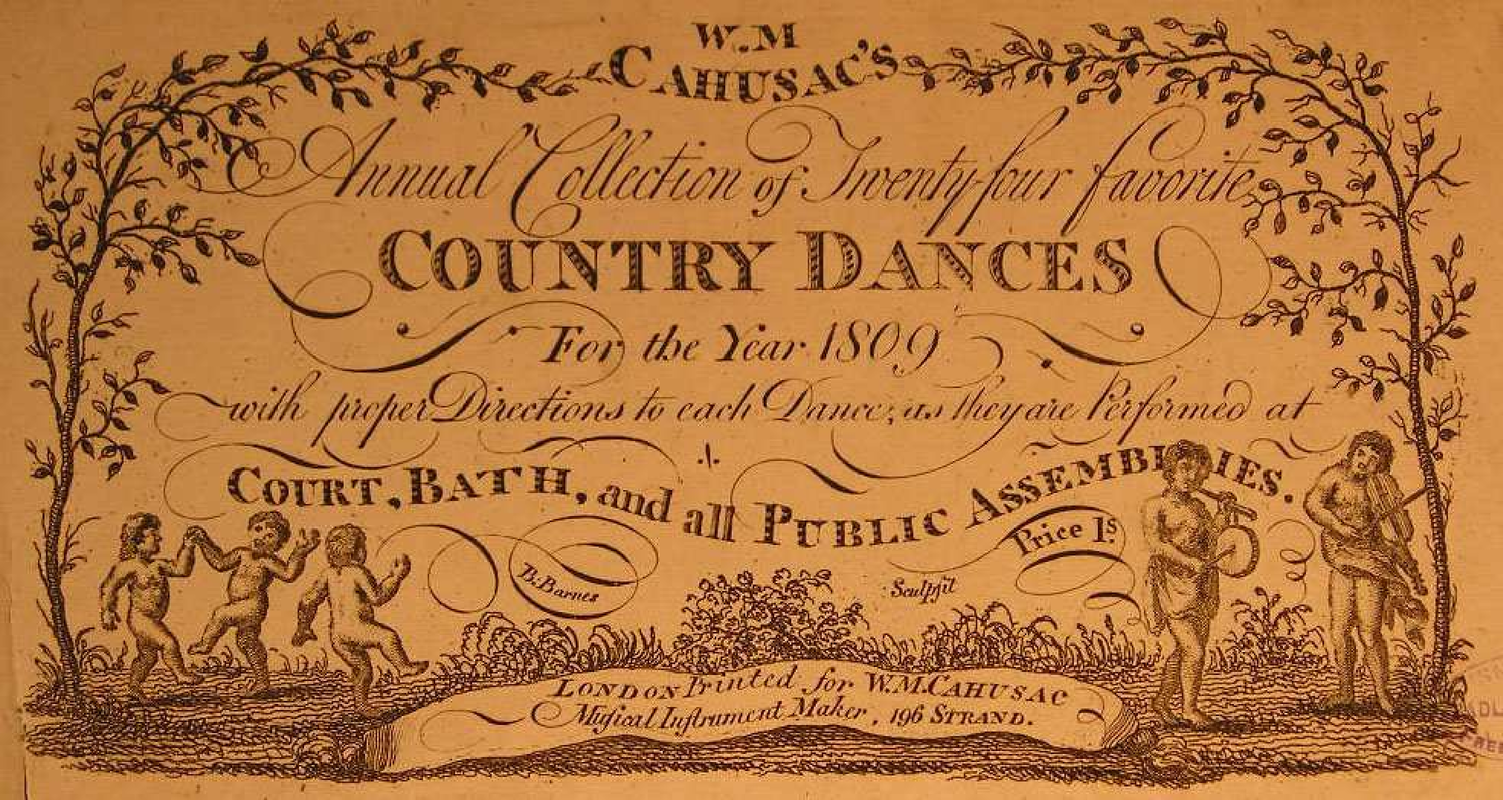 W.M
CAHUSAC'S
Annual Collection of Twenty-four favorite
COUNTRY DANCES
For the Year 1809
with proper Directions to each Dance; as they are Performed at
COURT, BATH, and all PUBLIC ASSEMBLIES.
Price 1s
B. Barnes Sculpsit
LONDON Printed for W.M. CAHUSAC
Musical Instrument Maker, 196 STRAND.